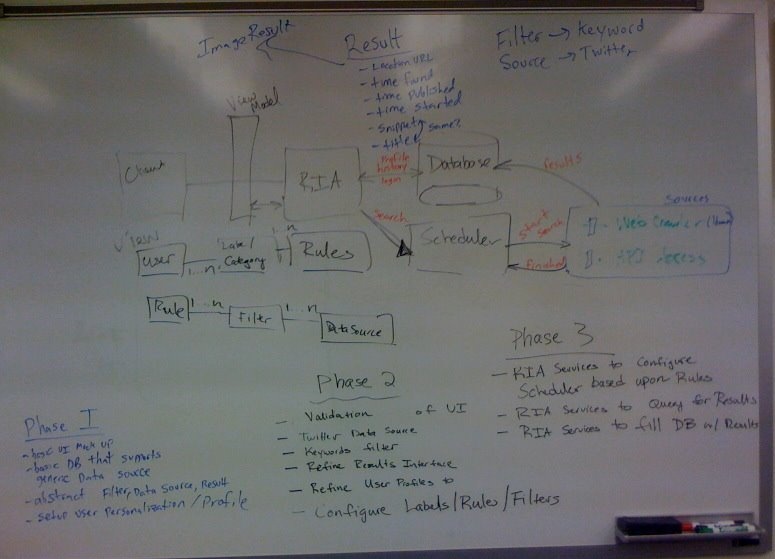 Image Result
Result
- Location URL
- time found
- time Published
- time started
- snippet
- title
same?
Filter → Keyword
Source → Twitter
View Model
Client
RIA
Profile
history
login
Database
results
View
Search
Scheduler
Start Search
Finished
Sources
Web Crawler
API Access
User
1..n
Label/
Category
1..n
Rules
Rule
1...n
Filter
1...n
Data Source
Phase I
- basic UI Mock up
- basic DB that supports
generic Data source
- abstract Filter, Data Source, Result
- setup user Personalization / Profile
Phase 2
- Validation of UI
- Twitter Data Source
- Keywords filter
- Refine Results Interface
- Refine User Profiles to
- Configure Labels/Rules/Filters
Phase 3
- RIA Services to Configure
Scheduler based upon Rules
- RIA Services to Query for Results
- RIA Services to fill DB w/ Results